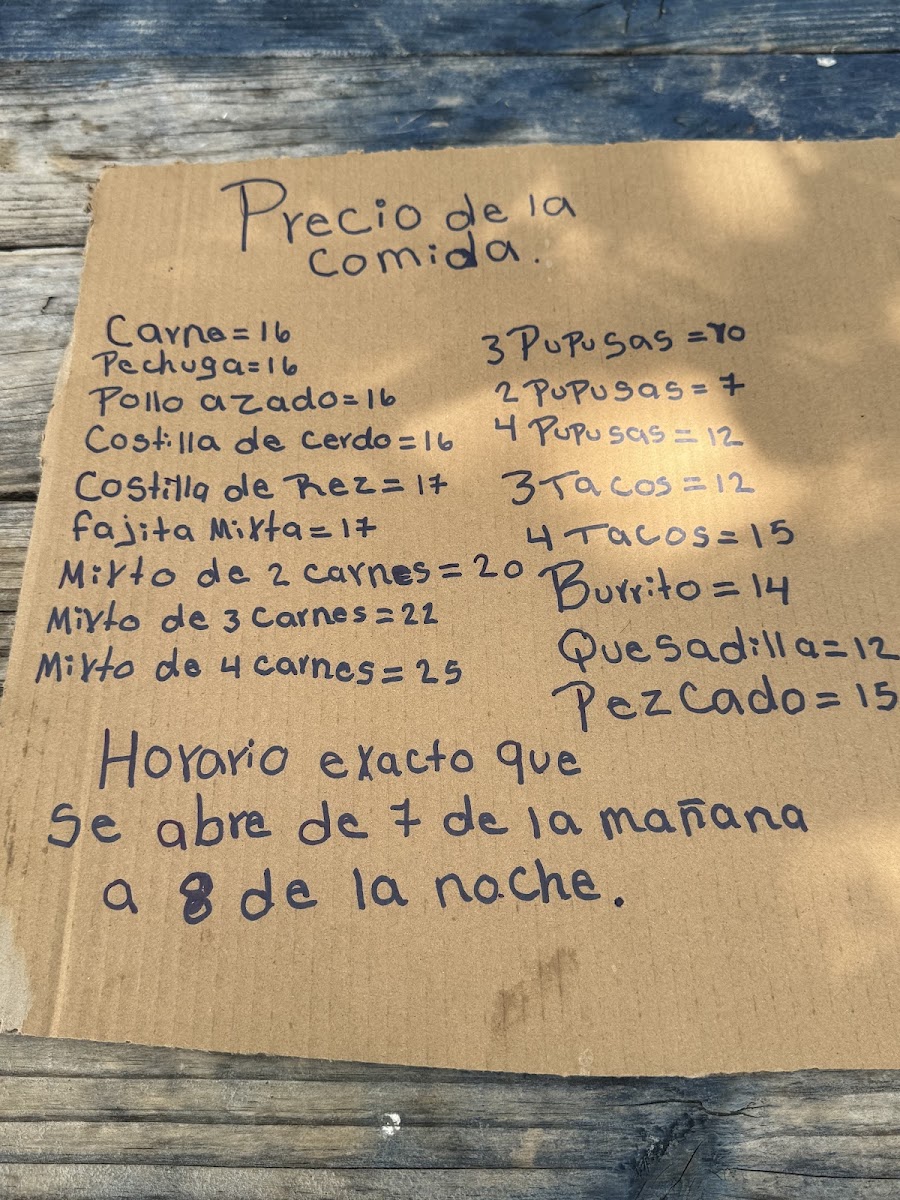 Precio de la
comida.
Carne=16
Pechuga=16
Pollo azado=16
Costilla de cerdo=16
Costilla de Rez=17
fajita Mixta=17
Mixto de 2 carnes=20
Mixto de 3 carnes=22
Mixto de 4 carnes=25
3 Pupusas=10
2 Pupusas=7
4 Pupusas=12
3 Tacos=12
4 Tacos=15
Burrito=14
Quesadilla=12
Pezcado=15
Horario exacto que
se abre de 7 de la mañana
a 8 de la noche.